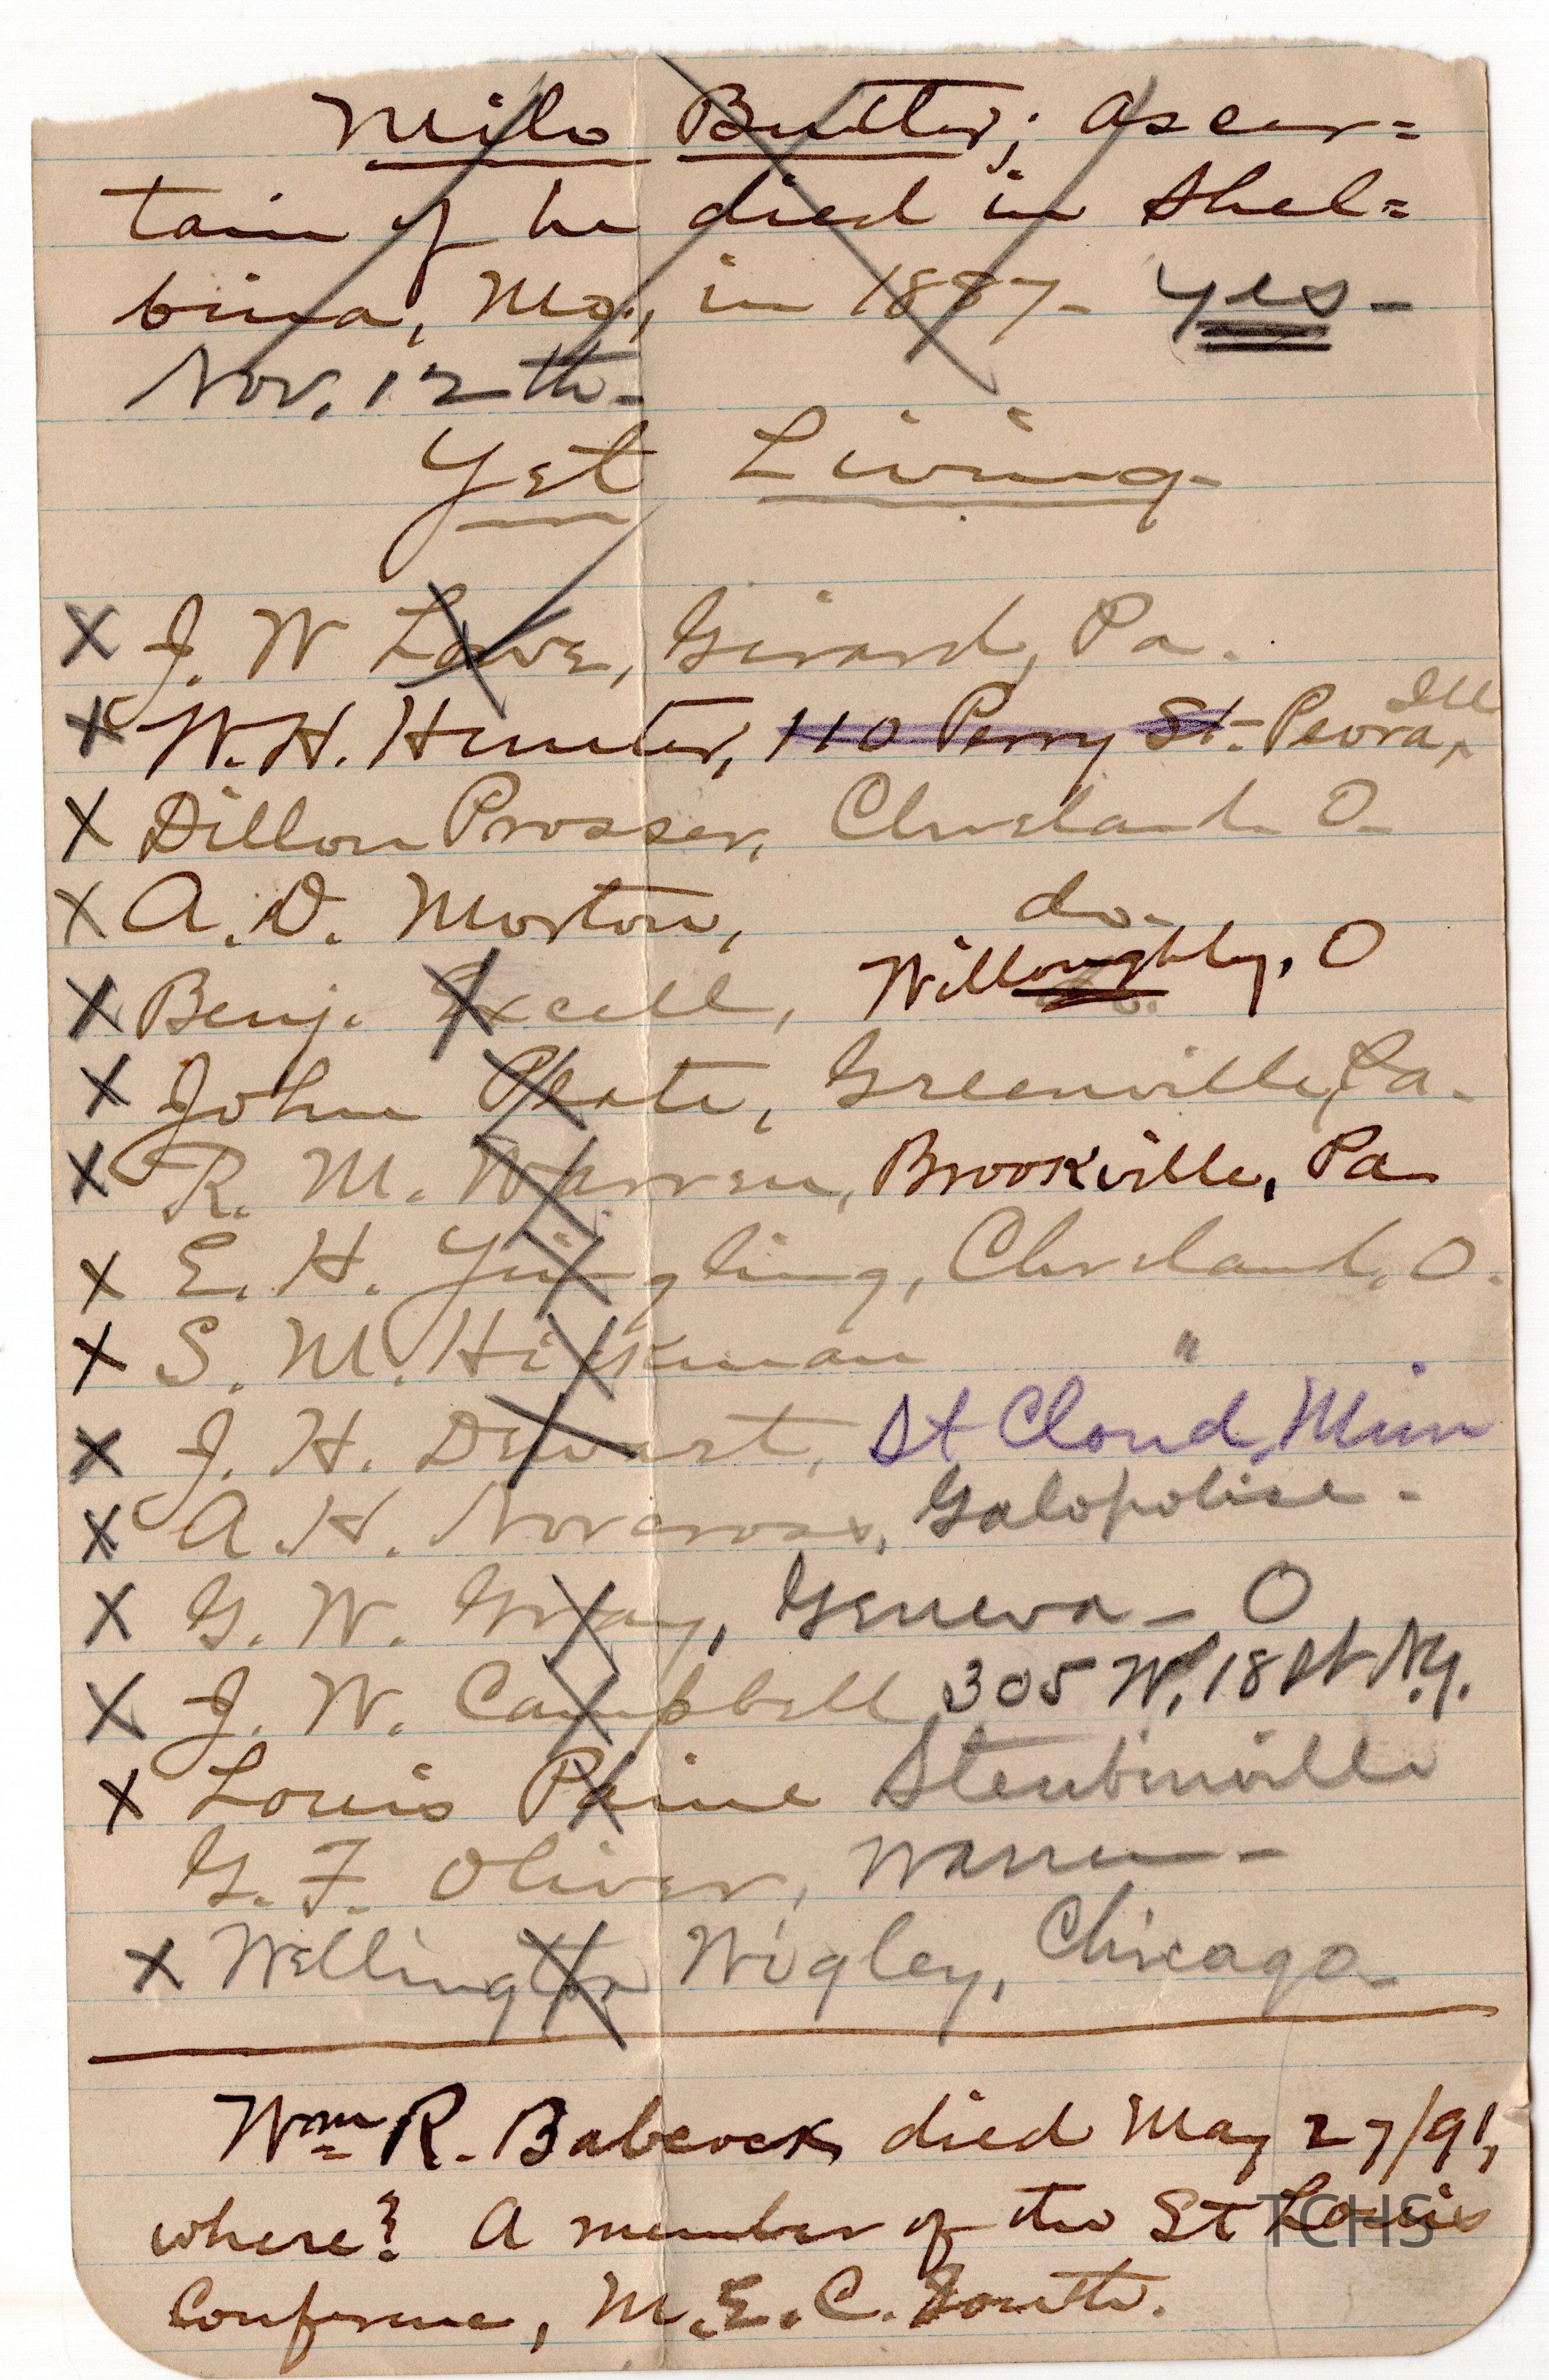 Milo Butler; ascer=
tain if he died in Shel=
bina, Mo., in 1887- Yes-
Nov. 12th-
Yet Living-
X J. W Lowe, Girard, Pa.
X W. H. Hunter, 110 Perry St. Peora, Ill
X Dillon Prosser, Cleveland O-
X A. D. Morton, do-
X Benj. Excell, Willoughby, O
X John Peate, Greenville, Pa.
X R. M. Warren, Brookville, Pa
X E. H. Yingling, Cleveland, O.
X S. M. Hickman "
X J. H. Dewart, St Cloud, Minn
X A. H. Norcross, Galopolise-
X G. W. Gray, Geneva- O
X J. W. Campbell 305 W. 18 St N.Y.
X Louis Paine Steubinville
G. F. Oliver, Warren-
X Wellington Wigley, Chicago-
Wm R. Babcock died May 27/91,
where? A member of the St Louis
Conference, M. E. C. South.
TCHS